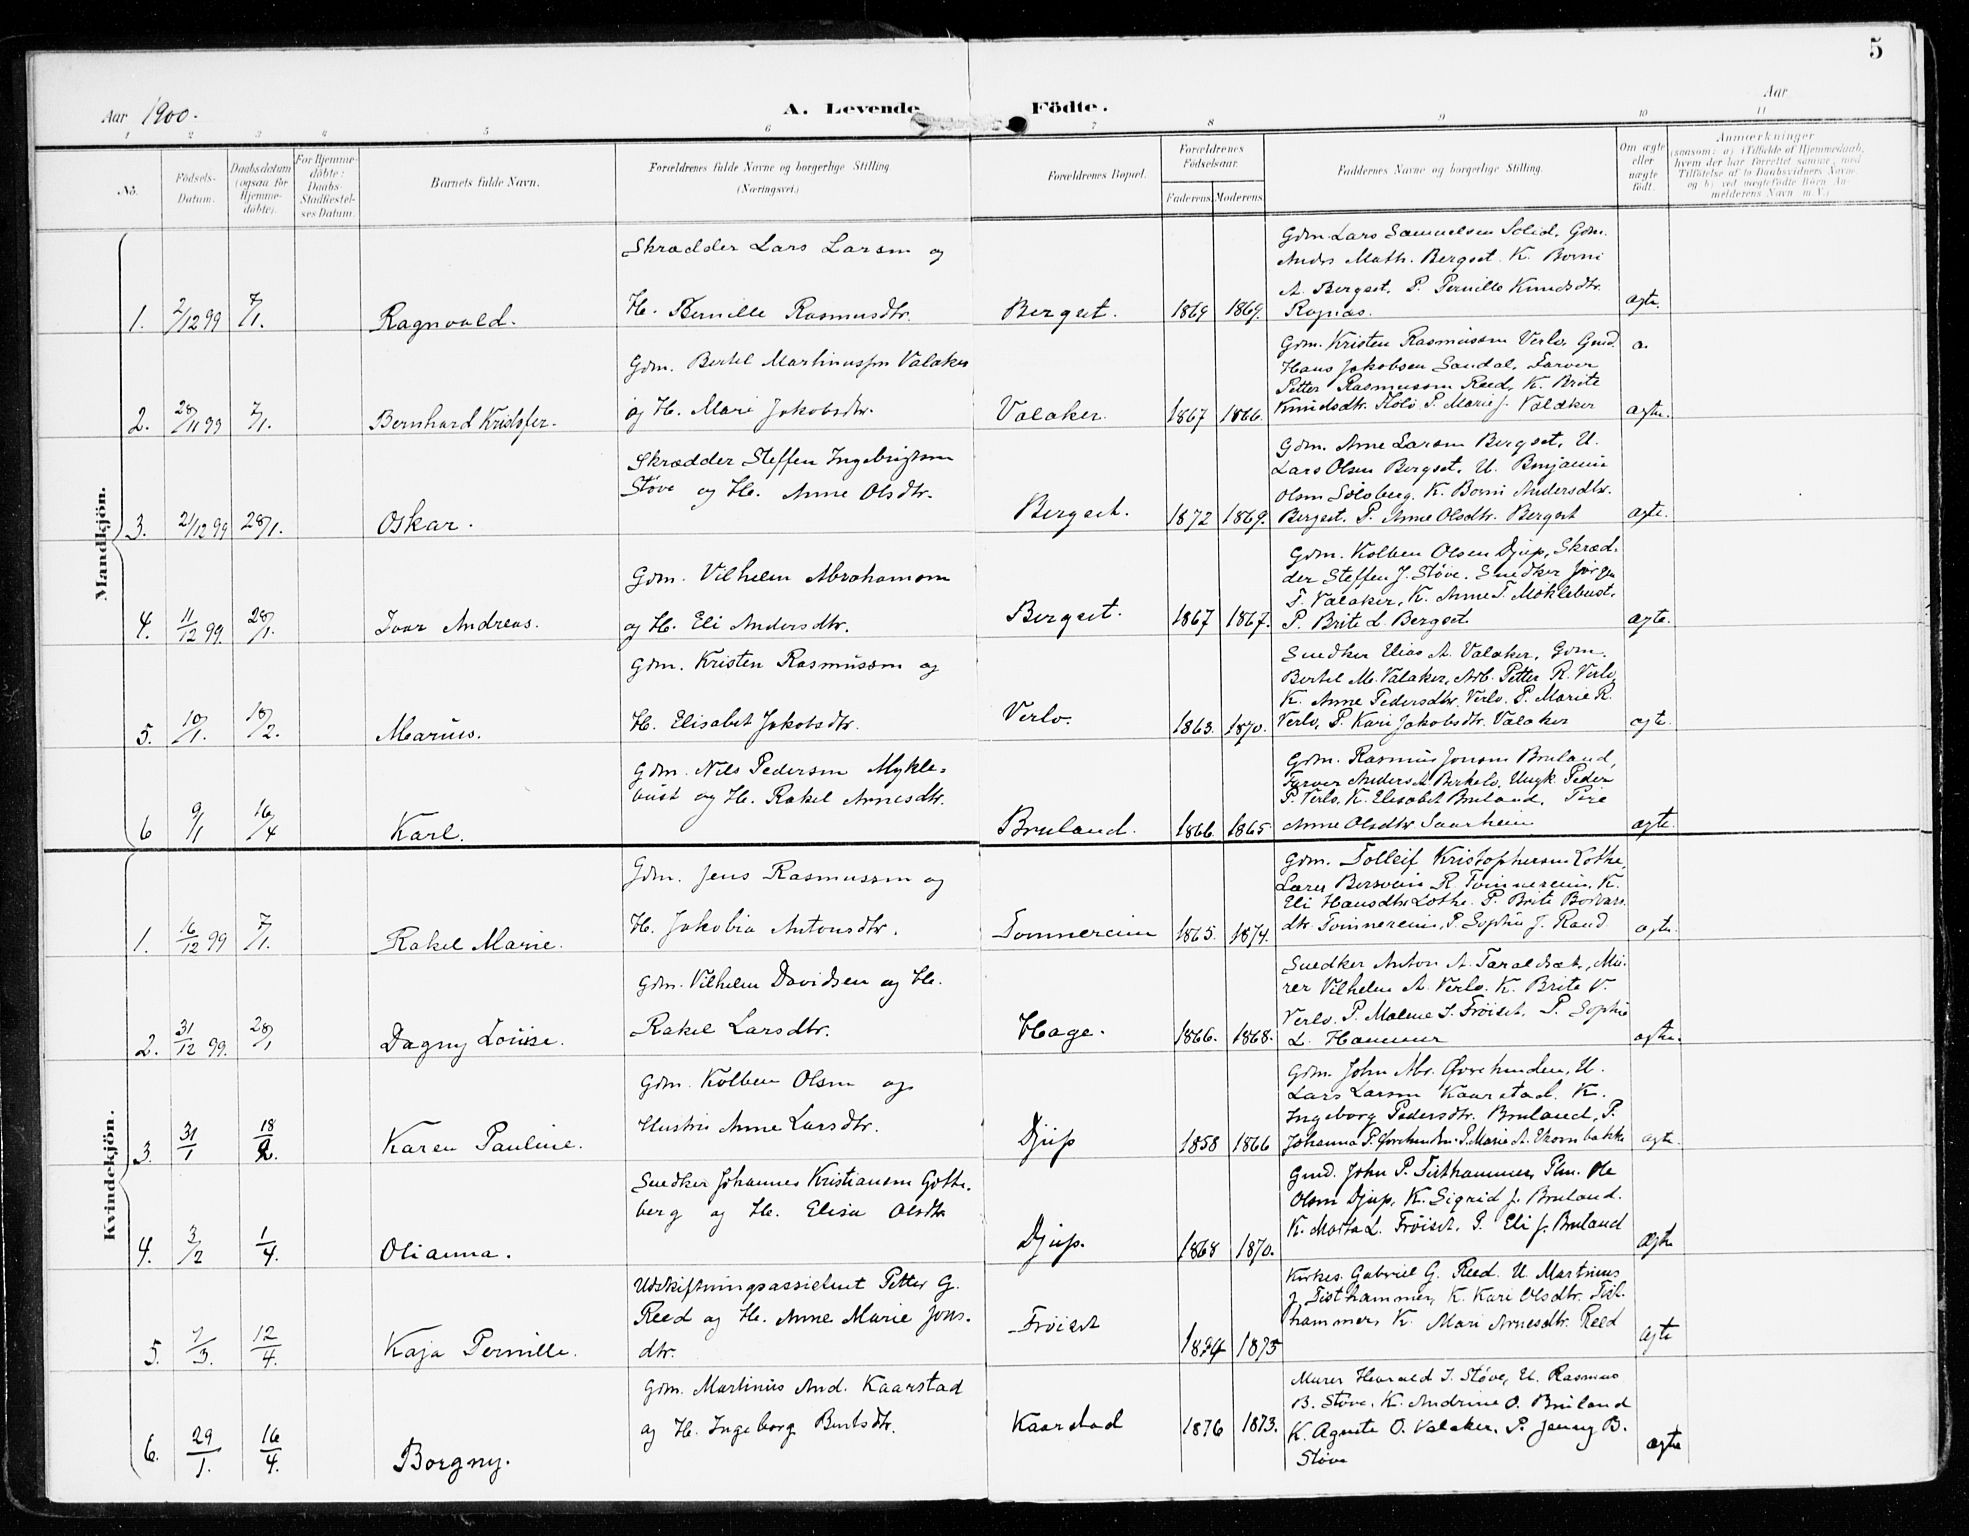 5
Aar 1900.
A. Levende Födte.
Aar
1 2 3 4 5 6 7 8 9 10 11
No.
Födsels-Datum.
Daabsdatum (ogsaa for Hjemme-döbte).
For Hjemme-döbte: Daabs-Stadfæstel-ses Datum.
Barnets fulde Navn.
Forældrenes fulde Navne og borgerlige Stilling
(Næringsvei.)
Forældrenes Bopæl.
Forældrenes Födselsaar.
Faderens Moderens
Faddernes Navne og borgerlig Stilling.
Om ægte eller uægte födt.
Anmærkninger
(saasom: a) i Tilfælde af Hjemmedaab,
hvem der har forrettet samme, med
Tilföielse af to Daabsvidners Navne.
og b) ved uægtefödte Börn An-
melderens Navn m. V.)
Mandkjön.
Skrædder Lars Larsen og
H. Bernille Rasmusdtr.
1. 2/12 99 7/1. Ragnvald. Bergset. 1869 1869.
Gdm. Lars Samuelsen Solid, Gdm.
Anders Math. Bergset. K. Borni
A. Bergset. P. Pernille Knudsdtr.
Rognas. ægte.
Gdm. Bertel Martinussen Valaker
og H. Mari Jakobsdtr.
2. 28/11 99 7/1. Bernhard Kristofer. Valaker. 1867 1866.
Gdm. Kristen Rasmussen Verlo, Gmd.
Hans Jakobsen Sandal, Farver
Petter Rasmussen Reed, K. Brite
Knudsdtr. P. Marie J. Valaker ægte.
Skrædder Steffen Ingebrigtsen
Støve og H. Anne Olsdtr.
3. 21/12 99 28/1. Oskar. Bergset. 1872 1869.
Gdm. Arne Larsen Bergset, U.
Lars Olsen Bergset, U. Benjamin
Olsen Solsberg. K. Borni Andersdtr.
Bergset. P. Anne Olsdtr. Bergset ægte.
Gdm. Vilhelm Abrahamsen
og H. Eli Andersdtr.
4. 11/12 99. 28/1. Ivar Andreas. Bergset. 1867 1867.
Gdm. Kolben Olsen Djup, Skræd-
der Steffen J. Støve. Snedker Jörgen
T. Valaker, K. Anne T. Moklebust,
P. Brite L. Bergset. ægte.
Gdm. Kristen Rasmussen og
H. Elisabet Jakobsdtr.
5. 10/1. 18/2. Marius. Verlo. 1863. 1870.
Snedker Elias A. Valaker, Gdm.
Bertel M. Valaker, Arb. Petter R. Verlo,
K. Anne Pedersdtr. Verlo. P. Marie R.
Verlo, P. Kari Jakobsdtr. Valaker ægte.
Gdm. Nils Pedersen Mykle-
bust og H. Rakel Arnesdtr.
6 9/1 16/4 Karl. Bruland. 1866 1865.
Gdm. Rasmus Jonsen Bruland,
Farver Anders A Birkelo, Ungk. Peder
P. Verlo, K. Elisabet Bruland, Pige
Anne Olsdtr. Saarheim ægte.
Kvindekjön.
Gdm. Jens Rasmussen og
H. Jakobia Antonsdtr.
1. 16/12 99 7/1. Rakel Marie. Tonnereim 1865. 1874.
Gdm. Tolleif Kristophersen Lothe,
Lærer R. Tvinnereim, K.
Eli Hansdtr. Lothe. P. Brite
dtr. Tvinnereim, P. Sophie J. Rand ægte.
Gdm. Vilhelm Davidsen og H.
Rakel Larsdtr.
2. 31/12 99. 28/1 Dagny Louise. Hage. 1866. 1868.
Snedker Anton A. Taraldset, Mu-
rer Vilhelm A. Verlo. K. Brite V.
Verlo. P. Malene S. Frøiset, P. Sophie
L. Hammer ægte.
Gdm. Kolben Olsen og
Hustru Anne Larsdtr.
3. 31/1 18/2. Karen Pauline. Djup 1858 1866
Gdm. John Ab. Øvrehunden, U.
Lars Larsen Kaarstad. K.
Ingeborg Pedersdtr. Bruland, P.
Johanna P. Øvrehunden. P. Marie A. ægte.
Snedker Johannes Kristiansen Gothe-
berg og H. Elisa Olsdtr
4. 3/2 1/4. Olianna. Djup. 1868 1870.
Gmd. John P. Tisthammer, Plm. Ole
Olsen Djup, K. Sigrid J. Bruland.
K. Marta L. Frøiset, P. Eli J. Bruland ægte
Udskiftningsassistent Petter G.
Reed og H. Anne Marie Jons-
dtr.
5. 7/3. 12/4. Kaja Pernille. Frøiset 1874 1875
Kirkes. Gabriel G. Reed. U. Martinus
J. Tisthammer, K. Kari Olsdtr. Tist-
hammer, K. Mari Arnesdtr. Reed ægte
Gdm. Martinus And. Kaarstad
og H. Ingeborg Bentsdtr.
6. 29/1. 16/4. Borgny. Kaarstad 1876 1873.
Murer Harald I. Støve, U. Rasmus
B. Støve, K. Andrine O. Bruland
K. Agnete O. Valaker. P. Jenny B.
Støve ægte